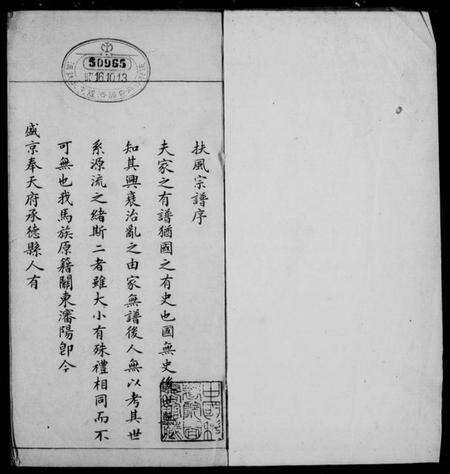 扶風宗譜序
夫家之有譜猶國之有史也國無史後世無以
知其興衰治亂之由家無譜後人無以考其世
系源流之緒斯二者雖大小有殊禮相同而不
可無也我馬族原籍關東瀋陽卽今
盛京奉天府承德縣人有
50965
16.10.13